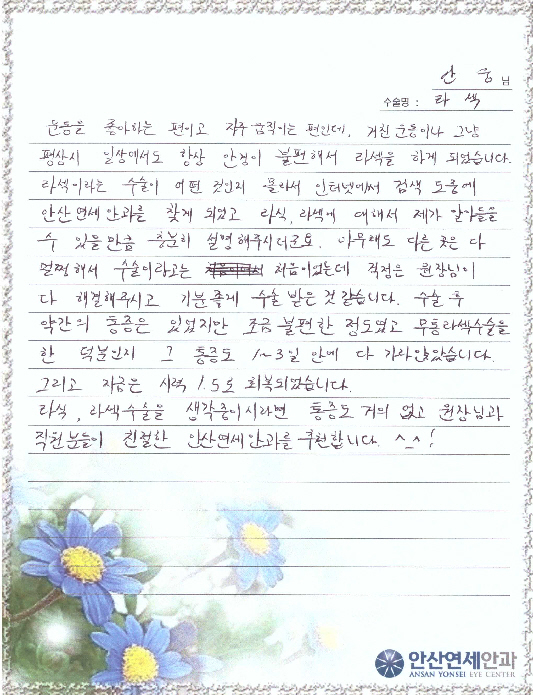 안 웅 님
수술명 : 라 섹
운동을 좋아하는 편이고 자주 움직이는 편인데, 거친 운동이나 그냥
평상시 일상에서도 항상 안경이 불편해서 라섹을 하게 되었습니다.
라섹이라는 수술이 어떤 것인지 몰라서 인터넷에서 검색 도중에
안산연세안과를 찾게 되었고 라식, 라섹에 대해서 제가 알아들을
수 있을만큼 충분히 설명해주시더군요. 아무래도 다른 곳은 다
멀쩡해서 수술이라고는 처음이었는데 걱정은 원장님이
다 해결해주시고 기분좋게 수술 받은 것 같습니다. 수술 후
약간의 통증은 있었지만 조금 불편한 정도였고 무통라섹수술을
한 덕분인지 그 통증도 1~3일 안에 다 가라앉았습니다.
그리고 지금은 시력 1.5로 회복되었습니다.
라식, 라섹수술을 생각중이시라면 통증도 거의 없고 원장님과
직원분들이 친절한 안산연세안과를 추천합니다. ^_^!
안산연세안과
ANSAN YONSEI EYE CENTER